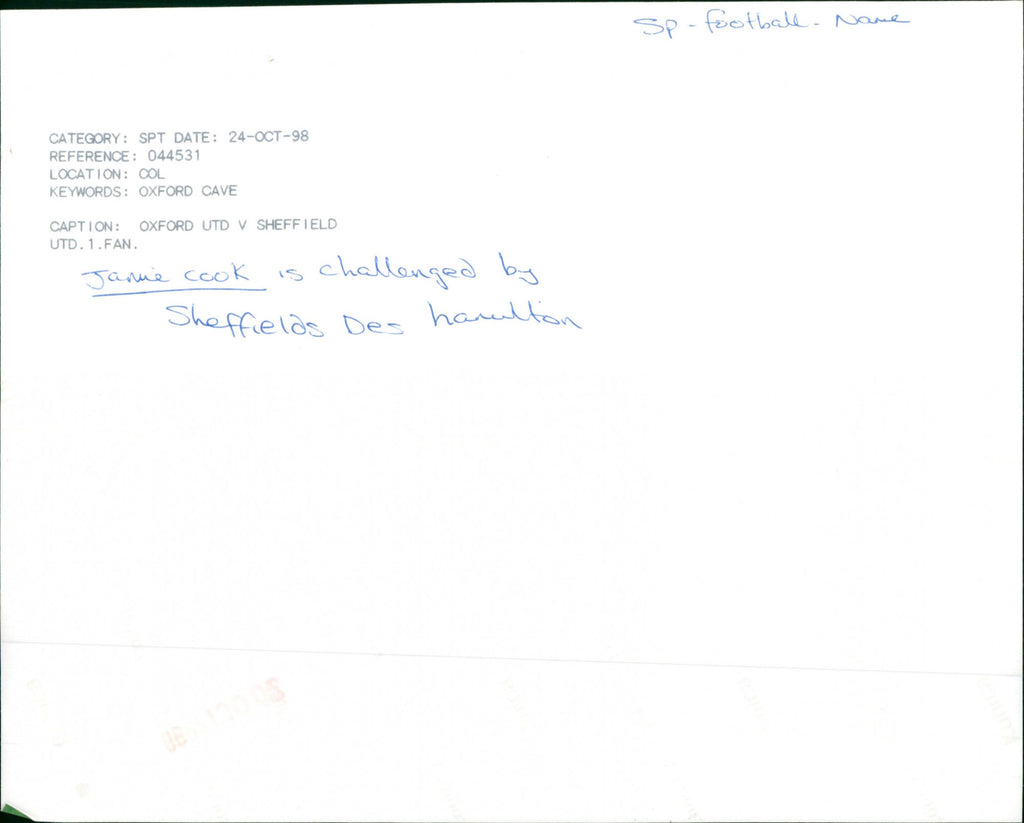 Sp - football - Name
CATEGORY: SPT DATE: 24-OCT-98
REFERENCE: 044531
LOCATION: COL
KEYWORDS: OXFORD CAVE
CAPTION: OXFORD UTD V SHEFFIELD
UTD.1.FAN.
Jamie cook is challenged by
Sheffields Des hamilton